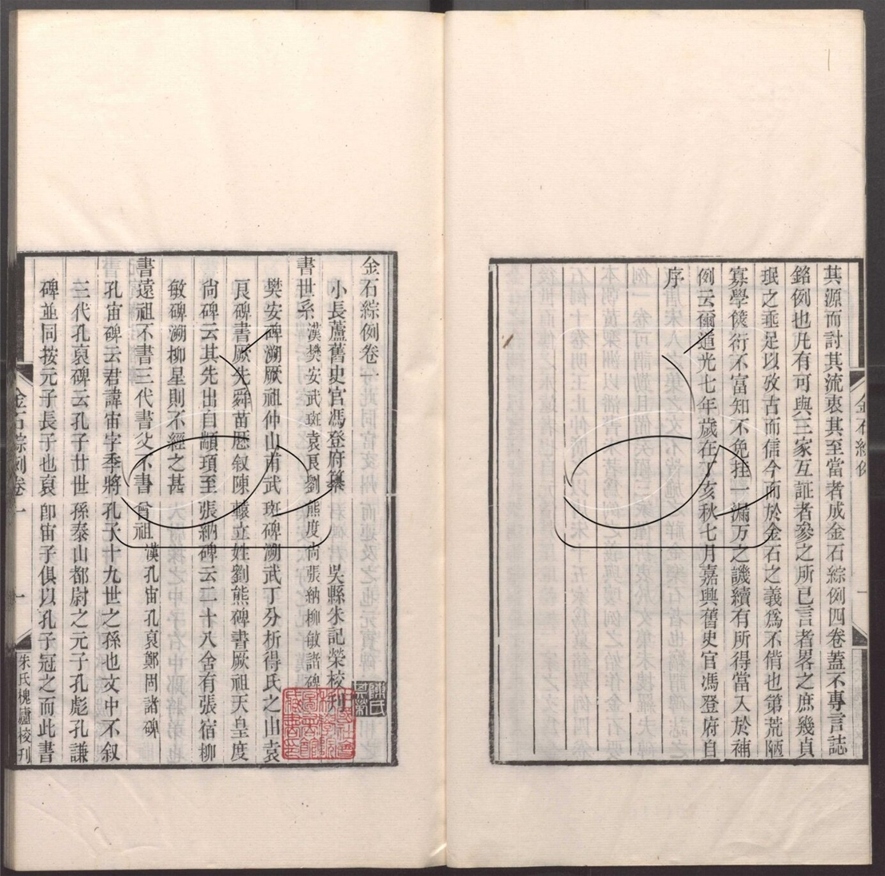 其源而討其流衷其至當者成金石綜例四卷蓋不專言誌
銘例也凡有可與三家互証者參之所已言者畧之庶幾貞
珉之垂足以攷古而信今而於金石之義爲不偝也第荒陋
寡學篋衍不富知不免挂一漏万之譏續有所得當入於補
例云爾道光七年歲在丁亥秋七月嘉興舊史官馮登府自
序
金石綜例
金石綜例卷一
小長蘆舊史官馮登府纂 吳縣朱記榮校刊
書世系 漢樊安武斑袁良劉熊度尚張納柳敏諸碑
樊安碑溯厥祖仲山甫武斑碑溯武丁分析得氏之由袁
良碑書厥先舜苗歷叙陳轅立姓劉熊碑書厥祖天皇度
尙碑云其先出自顓頊至張納碑云二十八舍有張宿柳
敏碑溯柳星則不經之甚
書遠祖不書三代書父不書曾祖 漢孔宙孔裒鄭固諸碑
孔宙碑云君諱宙字季將孔子十九世之孫也文中不叙
三代孔裒碑云孔子廿世孫泰山都尉之元子孔彪孔謙
碑並同按元子長子也裒卽宙子俱以孔子冠之而此書
金石綜例卷一
一
朱氏槐廬校刊